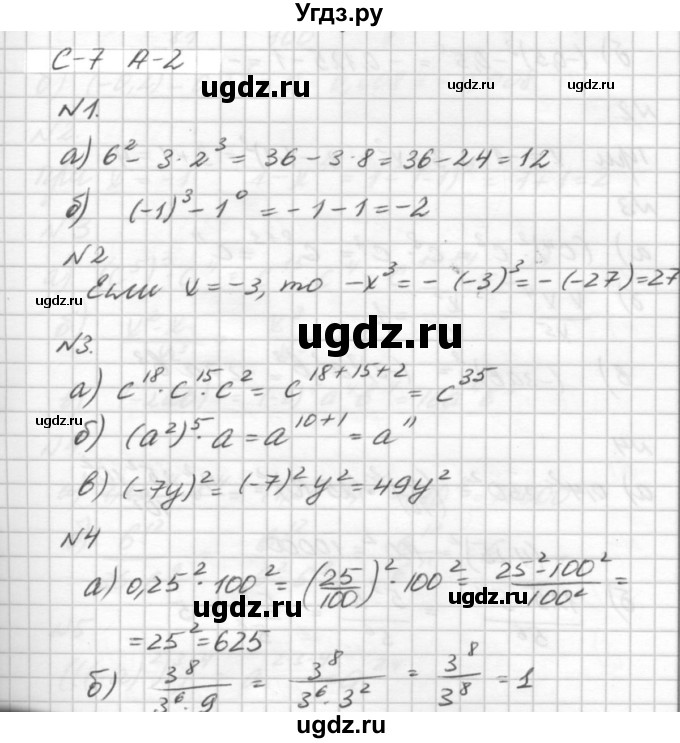 Угдз.ру
С-7 А-2
ugdz.ru
№1.
а) 6² - 3·2³ = 36 - 3·8 = 36 - 24 = 12
ugdz.ru
б) (-1)³ - 1⁰ = -1 - 1 = -2
№2
Если x = -3, то -x³ = -(-3)³ = -(-27) = 27
ugdz.ru
ugdz.ru
№3.
а) c¹⁸·c¹⁵·c² = c¹⁸⁺¹⁵⁺² = c³⁵
ugdz.ru
б) (a²)⁵·a = a¹⁰⁺¹ = a¹¹
в) (-7y)² = (-7)²·y² = 49y²
ugdz.ru
№4
а) 0,25²·100² = (25/100)²·100² = 25²·100²/100² =
ugdz.ru
ugdz.ru
= 25² = 625
б) 3⁸/3⁶·9 = 3⁸/3⁶·3² = 3⁸/3⁸ = 1
ugdz.ru